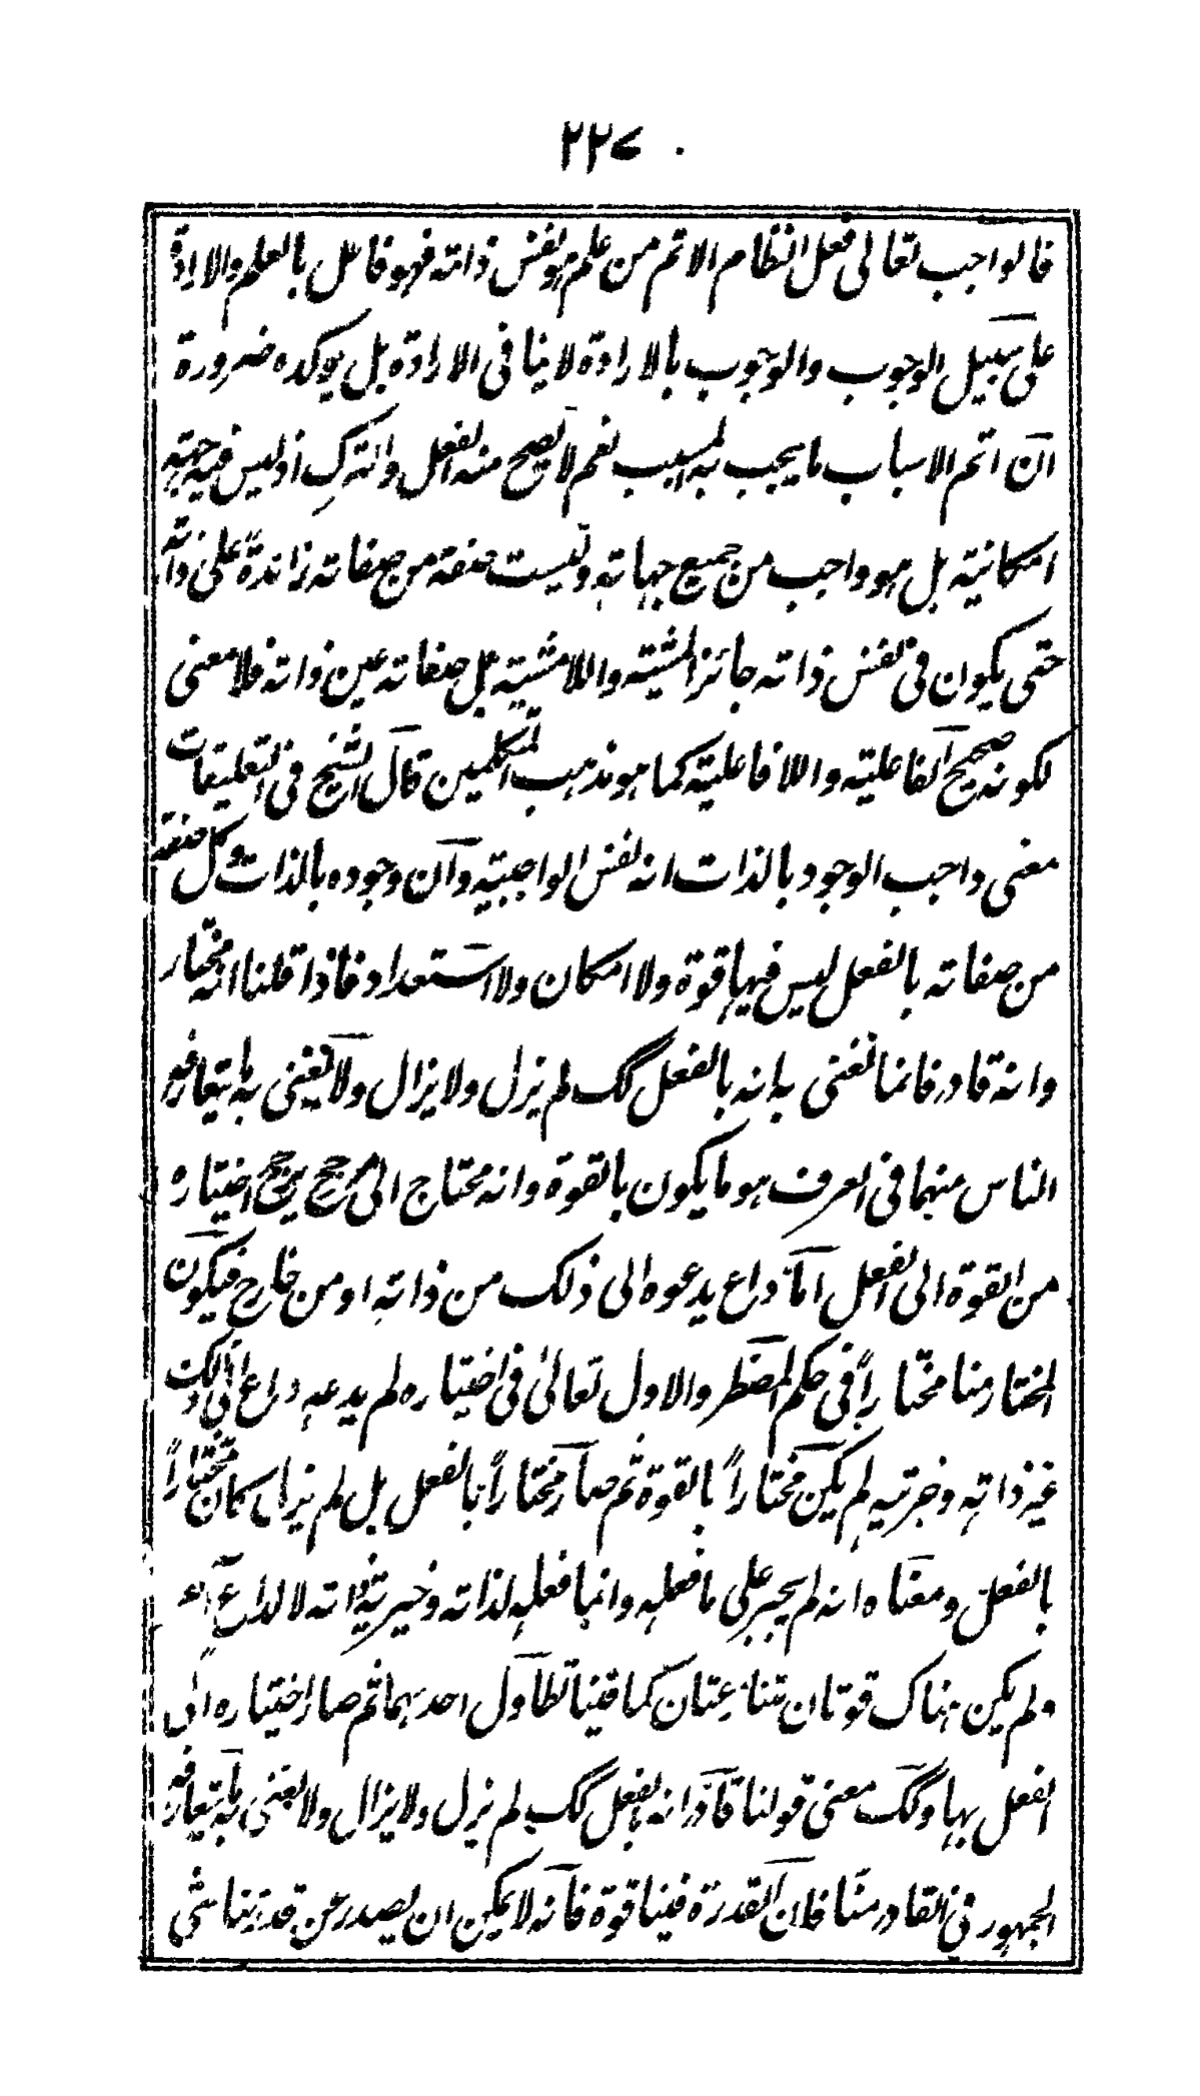 ٢٢٧
فالواجب تعالى فعل النظام الاتم من علم هو نفس ذاته فهو فاعل بالعلم والارادة
على سبيل الوجوب والوجوب بالارادة لا ينافى الارادة بل يوكده ضرورة
ان اتم الاسباب ما يجب به المسبب نعم لا يصح منه الفعل والترك اذ ليس فيه جهة
امكانية بل هو واجب من جميع جهاته وليست صفة من صفاته زائدة على ذاته
حتى يكون فى نفس ذاته جائز المشية واللامشية بل صفاته عين ذاته فلا معنى
لكونه صحيح الفاعلية واللافاعلية كما هو مذهب المتكلمين قال الشيخ فى التعليقات
معنى واجب الوجود بالذات انه نفس الواجبية وان وجوده بالذات وكل صفة
من صفاته بالفعل ليس فيها قوة ولا امكان ولا استعداد فاذا قلنا انه مختار
وانه قادر فانما نعنى به انه بالفعل كك لم يزل ولا يزال ولا نعنى به ما يتعارفه
الناس منهما فى العرف هو ما يكون بالقوة وانه محتاج الى مرجح يرجح اختياره
من القوة الى الفعل اما داع يدعوه الى ذلك من ذاته او من خارج فيكون
المختار منا مختاراً فى حكم المضطر والاول تعالىٰ فى اختياره لم يدعه داع الى ذلك
غير ذاته وخيريته لم يكن مختاراً بالقوة ثم صار مختاراً بالفعل بل لم يزل كان مختاراً
بالفعل ومعناه انه لم يجبر على ما فعله وانما فعله لذاته وخيرية ذاته لا لداع آخر
ولم يكن هناك قوتان تتنازعتان كما فينا تطاول احدهما ثم صار اختياره الى
الفعل بها وكك معنى قولنا قادر انه بالفعل كك لم يزل ولا يزال ولا نعنى به ما يتعارفه
الجمهور فى القادر منا فان القدرة فينا قوة فانه لا يمكن ان يصدر عن قدرتنا شى